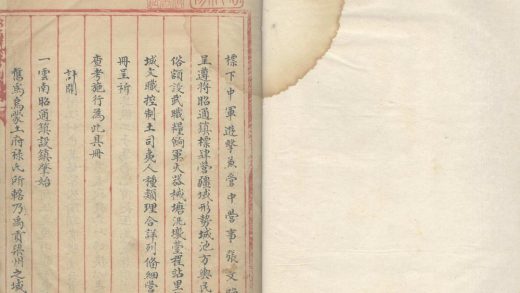 標下中軍遊擊兼管中營事張文
呈遵將昭通鎮標肆營疆域形勢城池方輿民
俗額設武職糧餉軍火器械塘汛墩臺程站里
城文職控制土司夷人種類理合詳列條細營
冊呈祈
查考施行為此具冊
計開
一雲南昭通鎮設鎮肇始
舊為烏蒙土府祿氏所轄乃禹貢梁州之域